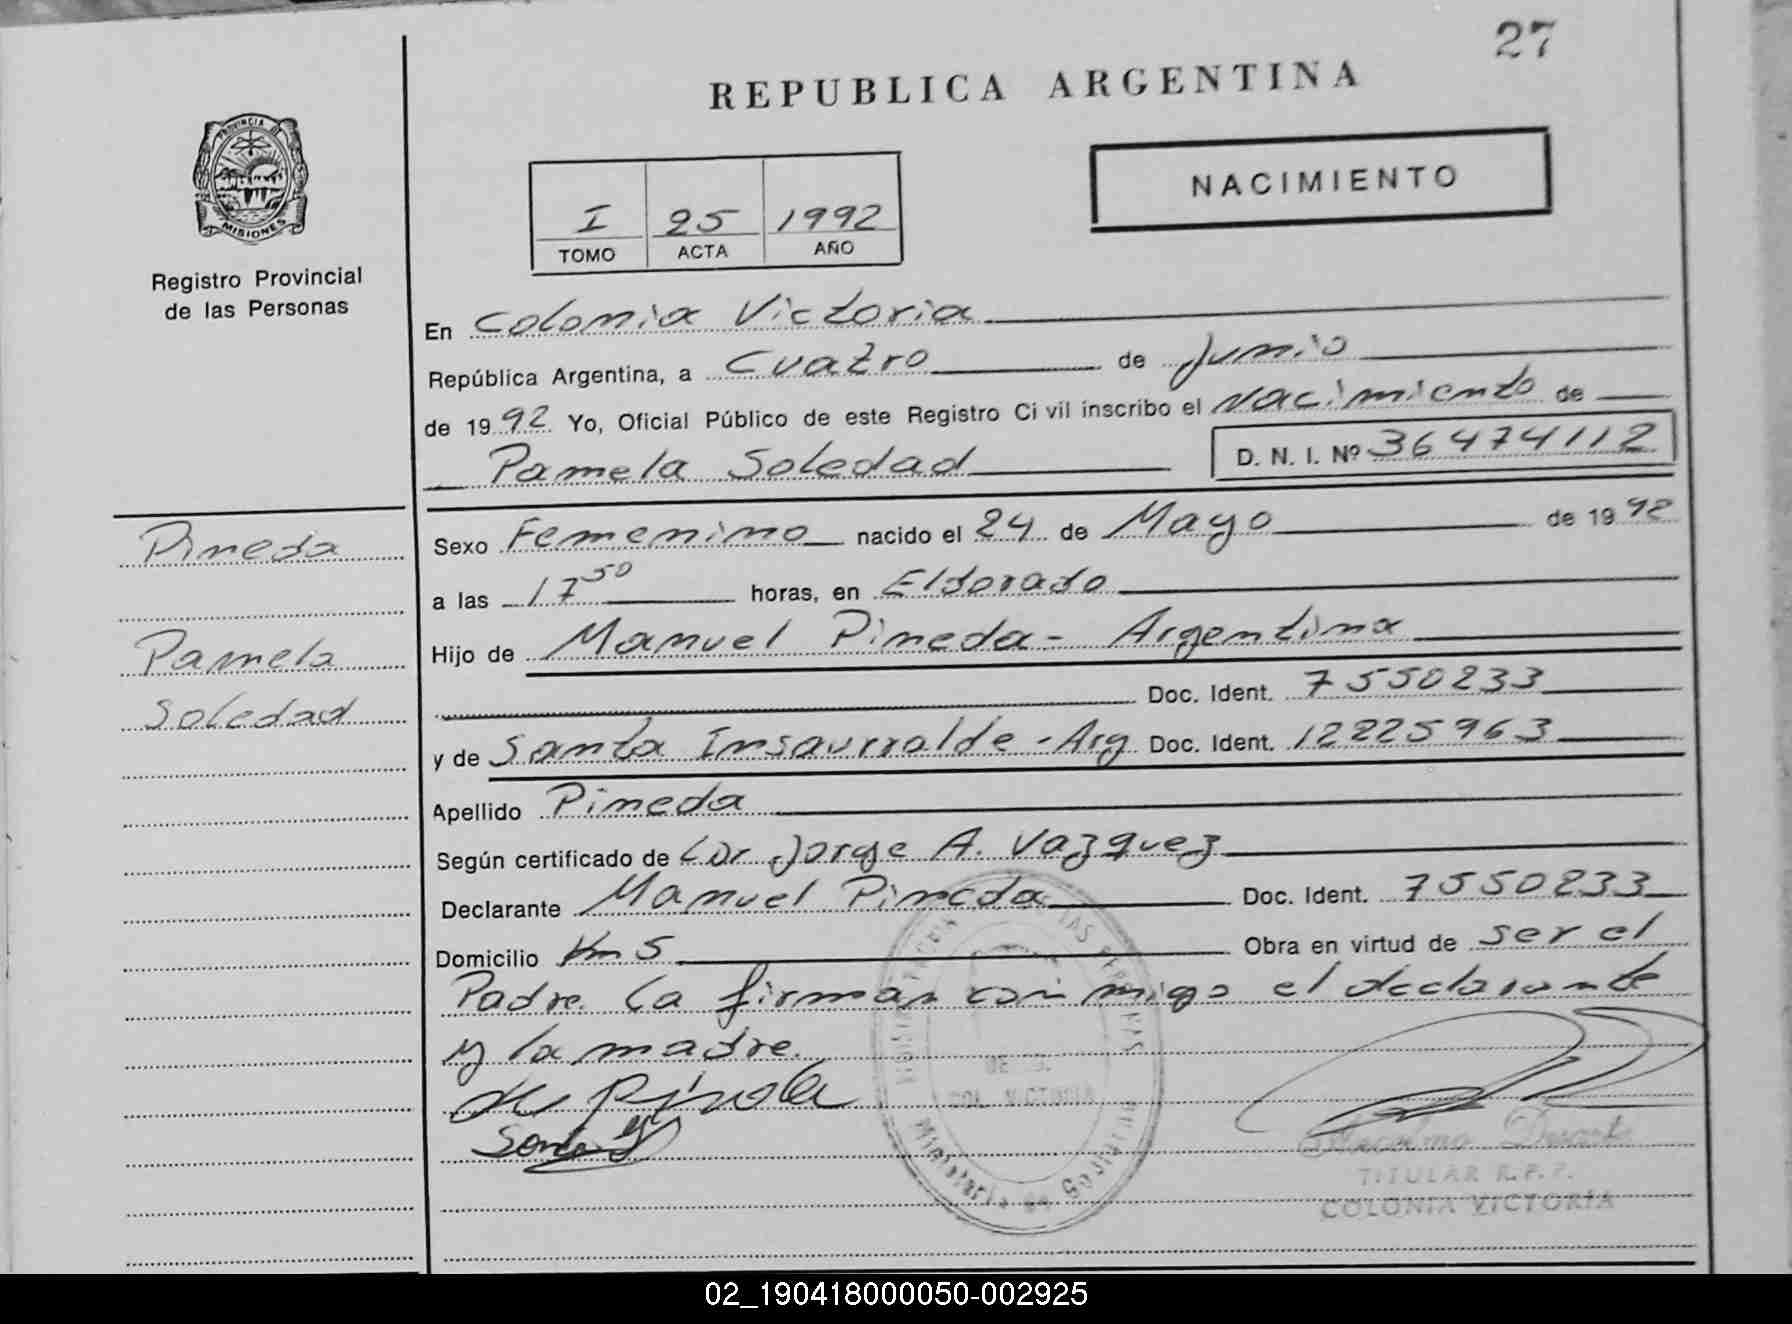 27
REPUBLICA ARGENTINA
PROVINCIA DE
MISIONES
NACIMIENTO
I 25 1992
TOMO ACTA AÑO
Registro Provincial
de las Personas
En Colonia Victoria
República Argentina, a Cuatro de Junio
de 1992 Yo, Oficial Público de este Registro Civil inscribo el Nacimiento de
Pamela Soledad D. N. I. Nº 36474112
Pineda
Pamela
Soledad
Sexo Femenino nacido el 24 de Mayo de 1992
a las 17 50 horas, en Eldorado
Hijo de Manuel Pineda - Argentina
Doc. Ident. 7550233
y de Santa Insaurralde - Arg Doc. Ident. 12225963
Apellido Pineda
Según certificado de Jorge A. Vazquez
Declarante Manuel Pineda Doc. Ident. 7550233
Domicilio Km 5 Obra en virtud de ser el
Padre. La firman conmigo el declarante
y la madre.
Ministerio de Gobierno
TITULAR R.P.P.
COLONIA VICTORIA
02_190418000050-002925